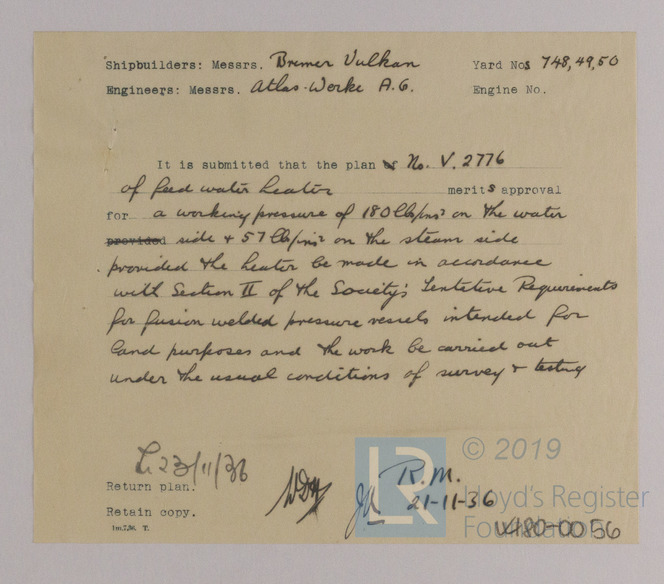 Shipbuilders: Messrs. Bremer Vulkan Yard Nos 748,49,50
Engineers: Messrs. Atlas-Werke A.G. Engine No.
It is submitted that the plan of No. V. 2776
of feed water heater merits approval
for a working pressure of 180 lb/ins² on the water
provided side & 57 lb/ins² on the steam side
provided the heater be made in accordance
with Section II of the Society's Tentative Requirements
for fusion welded pressure vessels intended for
land purposes and the work be carried out
under the usual conditions of survey & testing
L.23/11/36
Return plan.
Retain copy.
1m.7,34. T.
R.M.
21-11-36
LR
© 2019
Lloyd's Register
Foundation
W180-0056